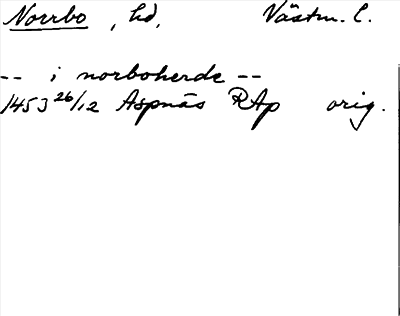 Norrbo, hd, Västm. l.
-- i norboherde --
1453 26/12 Aspnäs RAp orig.